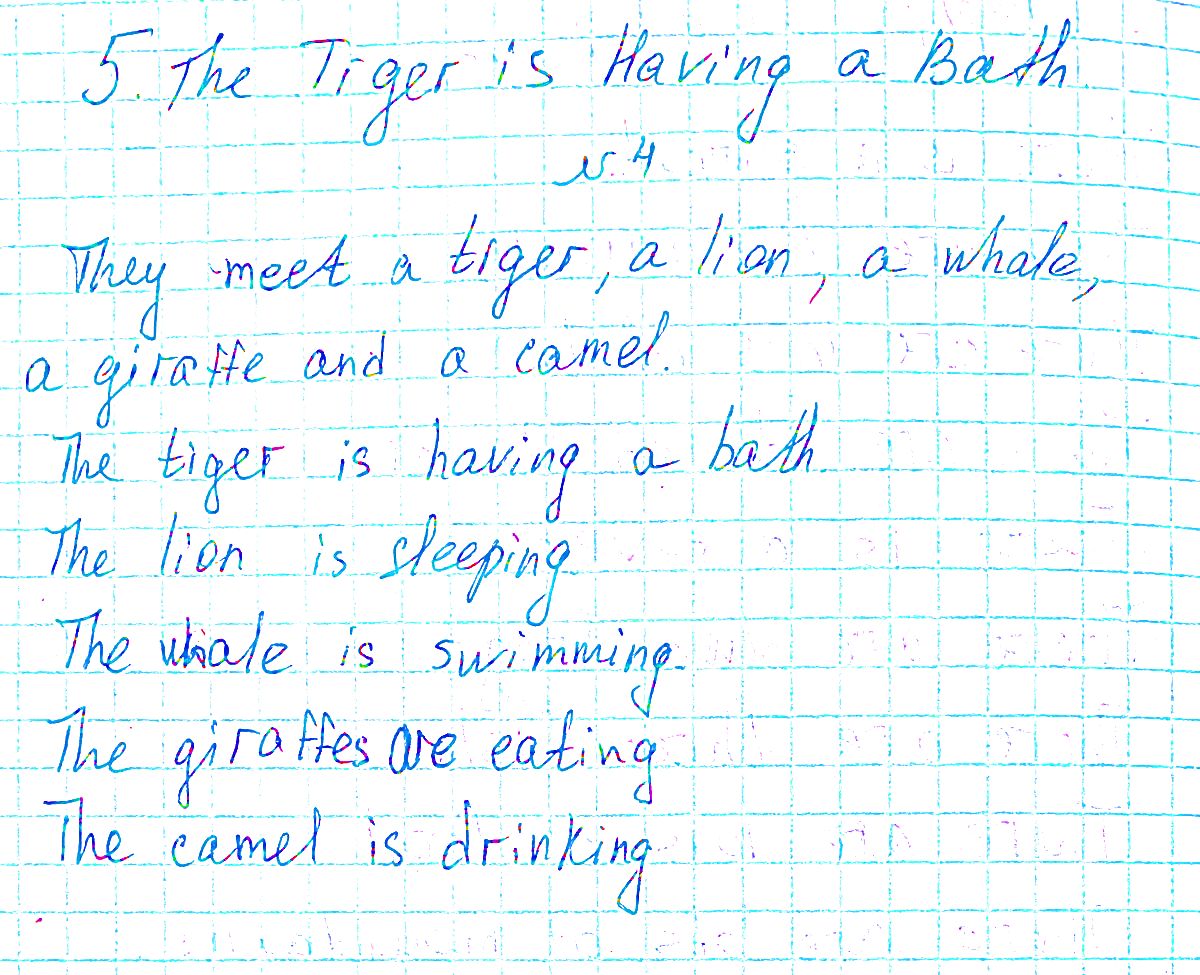 5. The Tiger is Having a Bath
№ 4
They meet a tiger, a lion, a whale,
a giraffe and a camel.
The tiger is having a bath.
The lion is sleeping.
The whale is swimming.
The giraffes are eating.
The camel is drinking